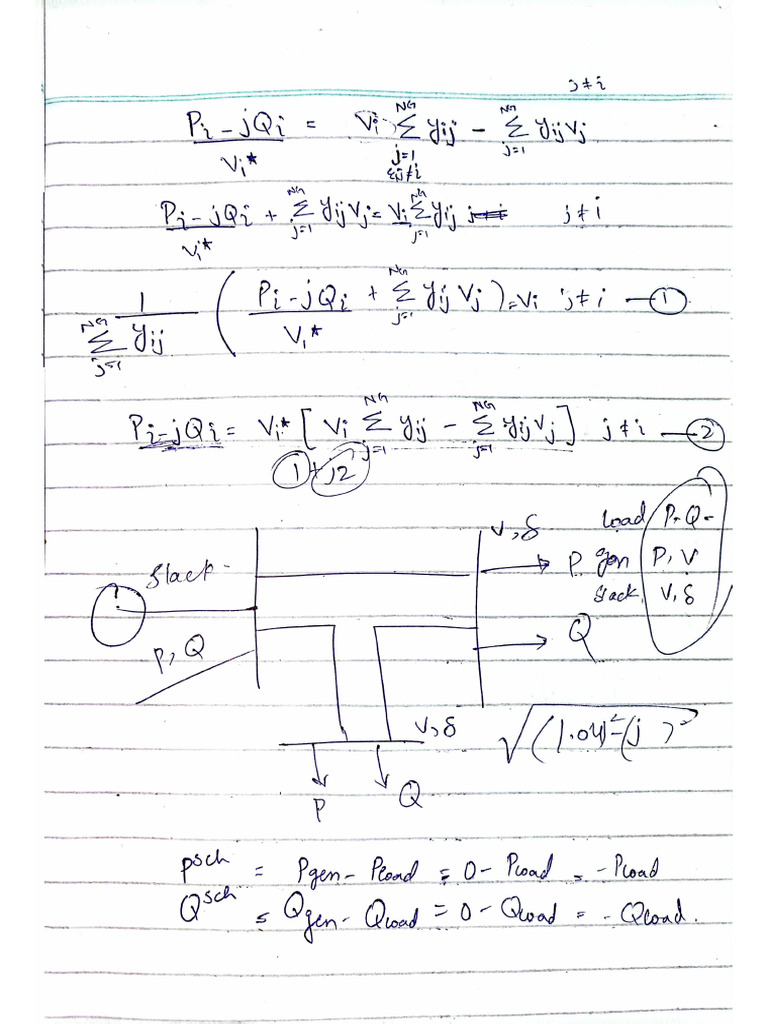 j≠i
Pi - jQi / Vi* = Vi Σ(j=1, &j≠i)^NG yij - Σ(j=1)^NG yij Vj
Pi - jQi / Vi* + Σ(j=1)^NG yij Vj = Vi Σ(j=1)^NG yij j≠i
1 / Σ(j=1)^NG yij ( Pi - jQi / Vi* + Σ(j=1)^NG yij Vj ) = Vi j≠i — ①
Pi - jQi = Vi* [ Vi Σ(j=1)^NG yij - Σ(j=1)^NG yij Vj ] j≠i — ②
1 + j2
V, δ
Load P Q
P
gen P, V
slack
slack V, δ
P, Q
Q
V, δ
√(1.04)² = (j )²
P
Q
P^sch = Pgen - Pload = 0 - Pload = -Pload
Q^sch = Qgen - Qload = 0 - Qload = -Qload.